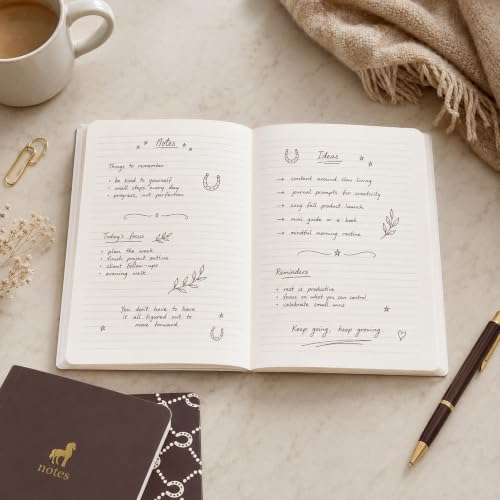 Notes
Things to remember:
• be kind to yourself
• small steps every day
• progress, not perfection
Today's focus
• plan the week
• finish project outline
• client follow-ups
• evening walk
You don't have to have
it all figured out to
move forward.
Ideas
→ content around slow living
→ journal prompts for creativity
→ cozy fall product launch
→ mini guide or e book
→ mindful morning routine
Reminders
• rest is productive
• focus on what you can control
• celebrate small wins
Keep going, keep growing
notes